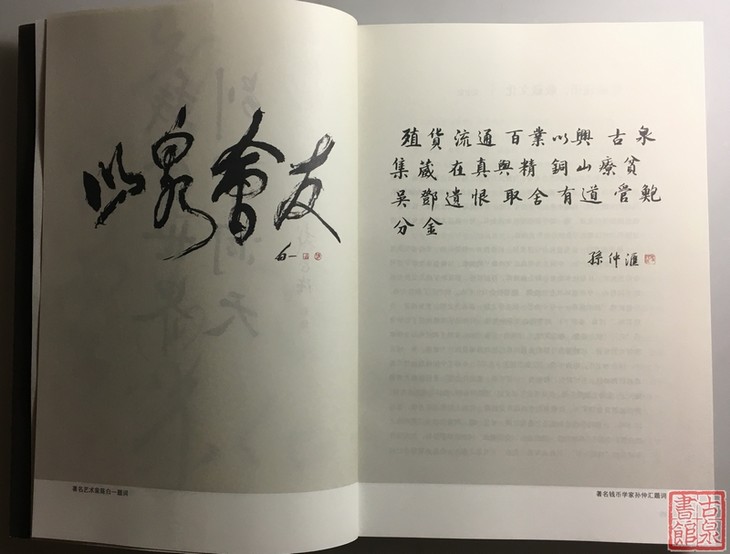 以泉會友
白一
著名艺术家庞白一题词
殖貨流通 百業以興 古泉
集葴 在真與精 銅山療貧
吳鄧遺恨 取舍有道 管鮑
分金
孫仲滙
著名钱币学家孙仲汇题词
古泉
書館